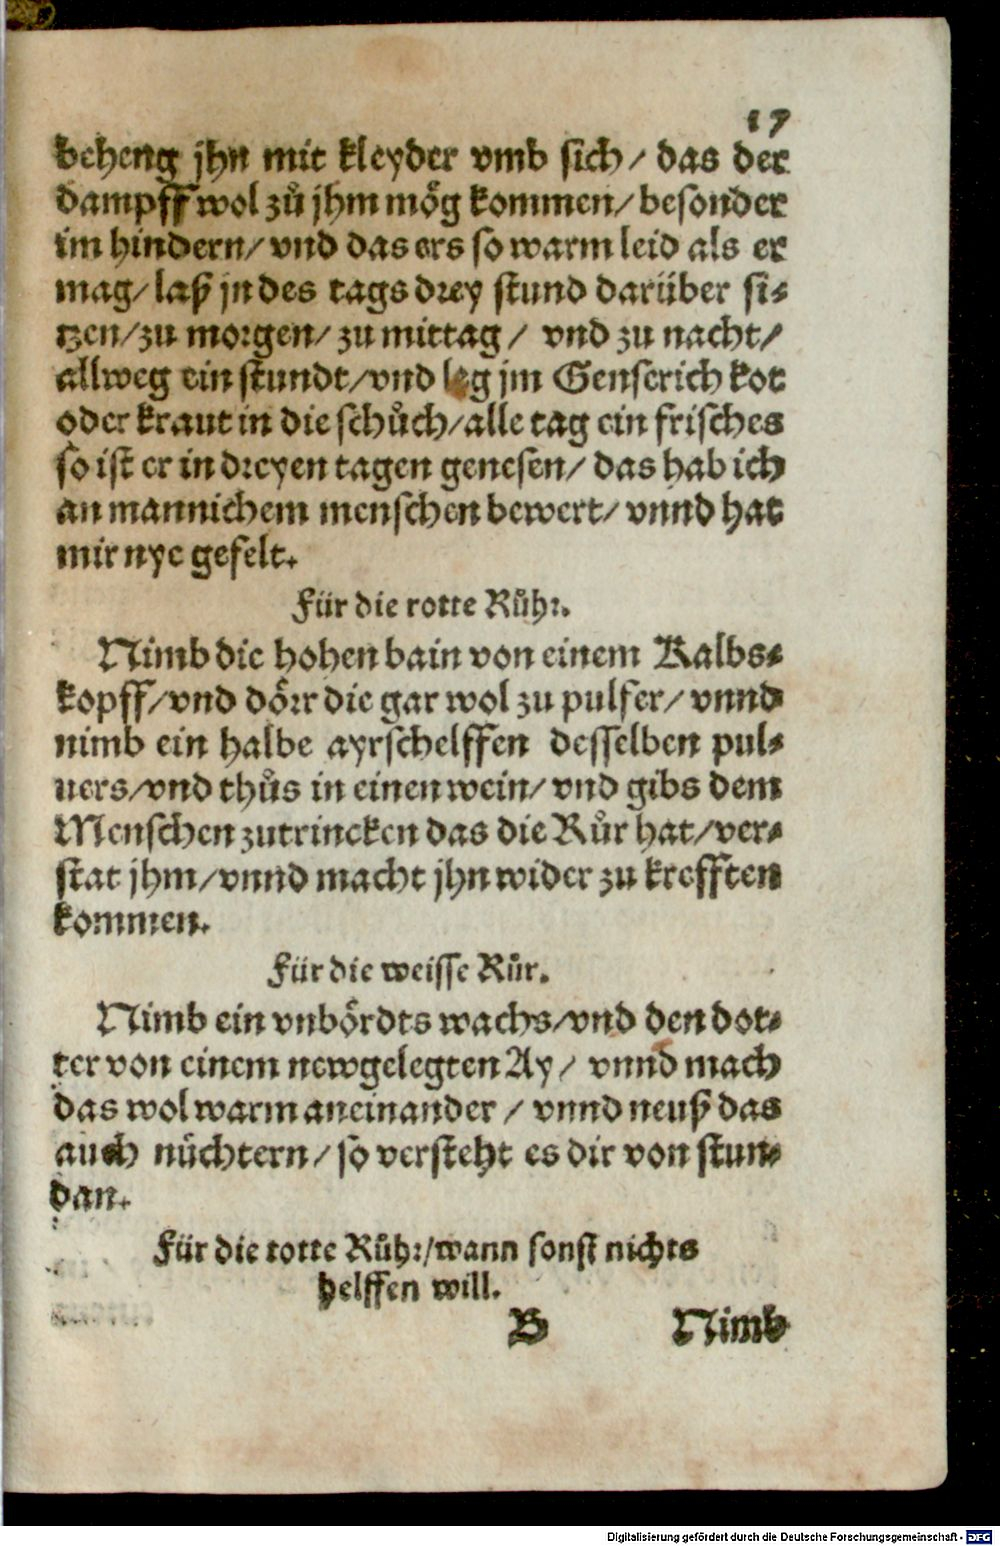 17
beheng jhn mit kleyder vmb sich/ das der
dampff wol zů jhm mög kommen/ besonder
im hindern/ vnd das ers so warm leid als er
mag/ laß jn des tags drey stund darüber si-
tzen/ zu morgen/ zu mittag/ vnd zu nacht/
allweg ein stundt/ vnd leg jm Genserich kot
oder kraut in die schůch/ alle tag ein frisches
so ist er in dreyen tagen genesen/ das hab ich
an mannichem menschen bewert/ vnnd hat
mir nye gefelt.
Für die rotte Růhr.
Nimb die hohen bain von einem Kalbs-
kopff/ vnd dörr die gar wol zu pulfer/ vnnd
nimb ein halbe ayrschelffen desselben pul-
uers/ vnd thůs in einen wein/ vnd gibs dem
Menschen zutrincken das die Růr hat/ ver-
stat jhm/ vnnd macht jhn wider zu krefften
kommen.
Für die weisse Růr.
Nimb ein vnbördts wachs/ vnd den dot-
ter von einem newgelegten Ay/ vnnd mach
das wol warm aneinander/ vnnd neuß das
auch nüchtern/ so versteht es dir von stun-
dan.
Für die rotte Růhr/ wann sonst nichts
helffen will.
B Nimb
Digitalisierung gefördert durch die Deutsche Forschungsgemeinschaft - DFG